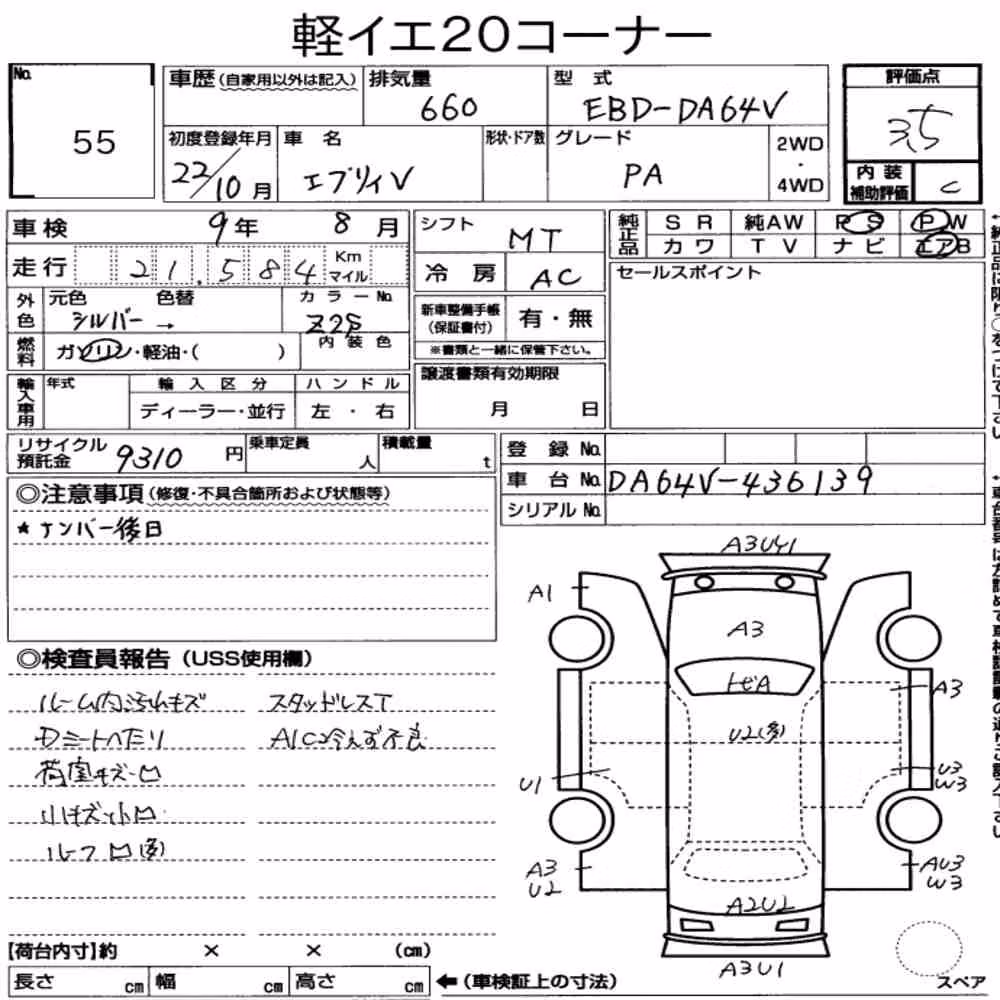 軽イエ20コーナー
No.
55
車歴(自家用以外は記入)
排気量
660
型 式
EBD-DA64V
評価点
3.5
初度登録年月
22/10月
車 名
エブリィV
形状・ドア数
グレード
PA
2WD
・
4WD
内 装
補助評価
C
車検
9年 8月
シフト
MT
純正品
S R
純AW
P S
P W
カ ワ
T V
ナ ビ
エアB
走行
21,584
Km
マイル
冷 房
AC
セールスポイント
外色
元色
シルバー →
色替
カラーNo.
Z2S
新車整備手帳
(保証書付)
有・無
※書類と一緒に保管下さい。
燃料
ガソリン・軽油・( )
内 装 色
輸入車用
年式
輸 入 区 分
ハ ン ド ル
ディーラー・並行
左 ・ 右
譲渡書類有効期限
月 日
リサイクル
預託金
9310円
乗車定員
人
積載量
t
登 録 No.
車 台 No.
DA64V-436139
シリアル No.
◎注意事項(修復・不具合箇所および状態等)
★ナンバー後日
◎検査員報告(USS使用欄)
ルーム内汚れキズ
スタッドレスT
Dシートヘたり
A/C冷えず不良
荷室キズ凹
小キズ小凹
ルーフ凹(多)
A3UY1
A1
A3
トビA
A3
U2(多)
U1
U3
W3
A3
U2
AU3
W3
A2U2
A3U1
【荷台内寸】約 × × (cm)
長さ cm
幅 cm
高さ cm
←(車検証上の寸法)
スペア